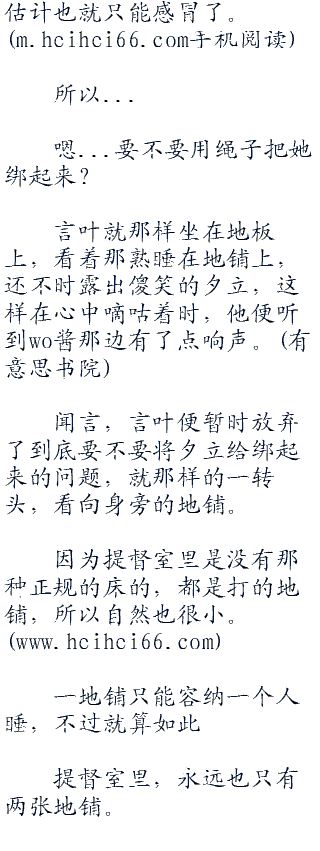 估计也就只能感冒了。
(m.hcihci66.com手机阅读)
所以...
嗯...要不要用绳子把她
绑起来？
言叶就那样坐在地板
上，看着那熟睡在地铺上，
还不时露出傻笑的夕立，这
样在心中嘀咕着时，他便听
到wo酱那边有了点响声。(有
意思书院)
闻言，言叶便暂时放弃
了到底要不要将夕立给绑起
来的问题，就那样的一转
头，看向身旁的地铺。
因为提督室里是没有那
种正规的床的，都是打的地
铺，所以自然也很小。
(www.hcihci66.com)
一地铺只能容纳一个人
睡，不过就算如此
提督室里，永远也只有
两张地铺。